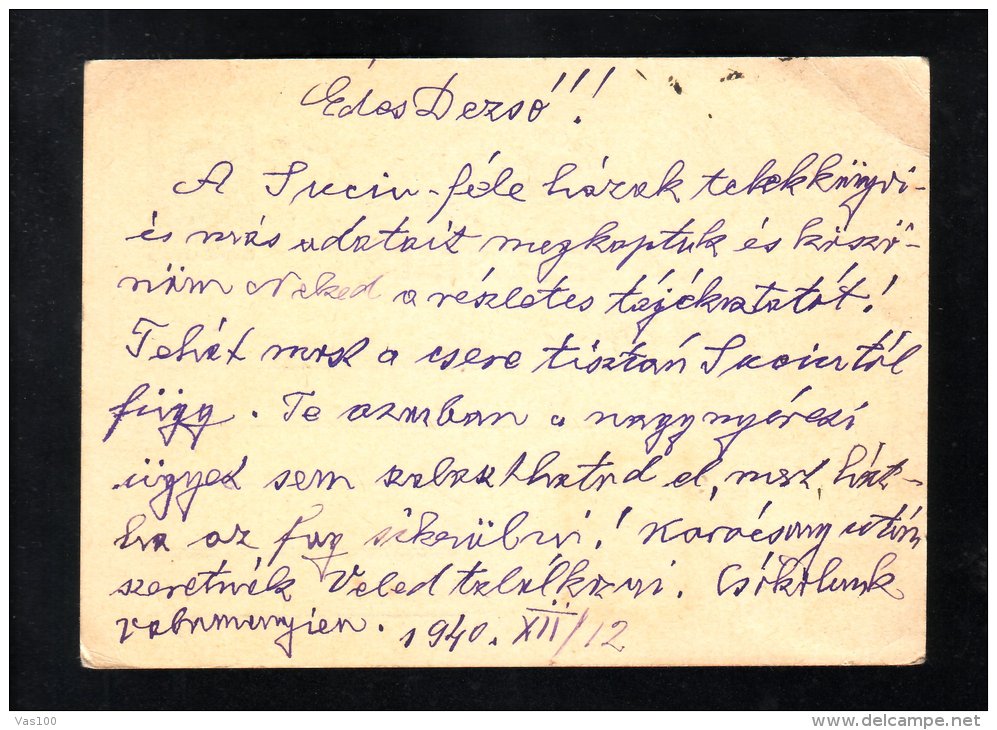 Édes Dezső!!!
A Suciu-féle házak telekkönyvi-
és más adatait megkaptuk és köszö-
nöm Neked a részletes tájékoztatót!
Tehát most a csere tisztán Suciutól
függ. Te azonban a nagynyéreszi
ügyet sem szalaszthatod el, mert hát-
ha az fog sikerülni! Karácsony után
szeretnék Veled találkozni. Csókolunk
valamennyien. 1940. XII/12
Vas100
www.delcampe.net